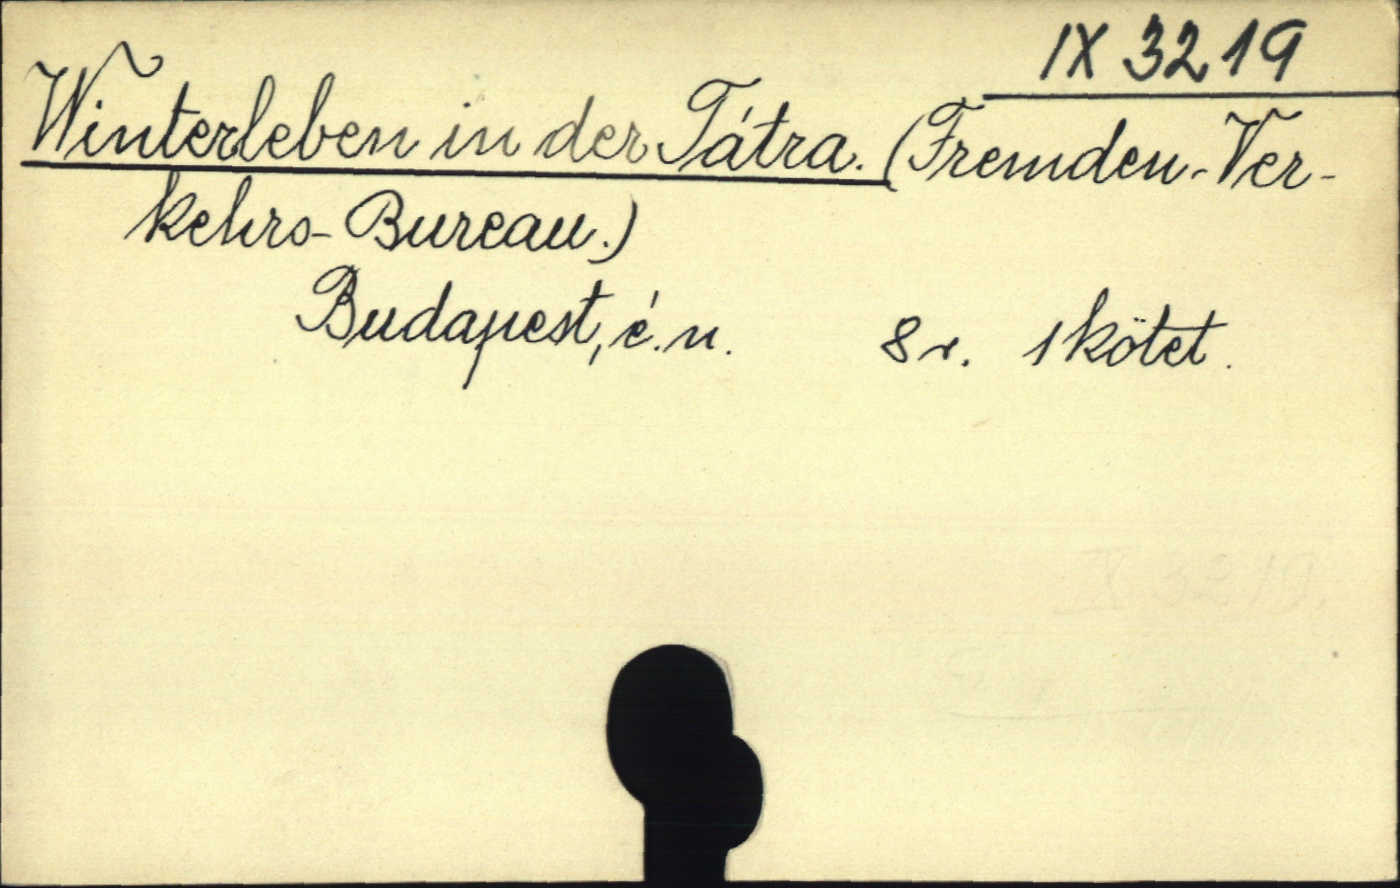 IX 3219
Winterleben in der Tátra. (Fremden-Ver-
kehrs-Bureau.)
Budapest, é. n. 8 r. 1 kötet.
IX 3219.